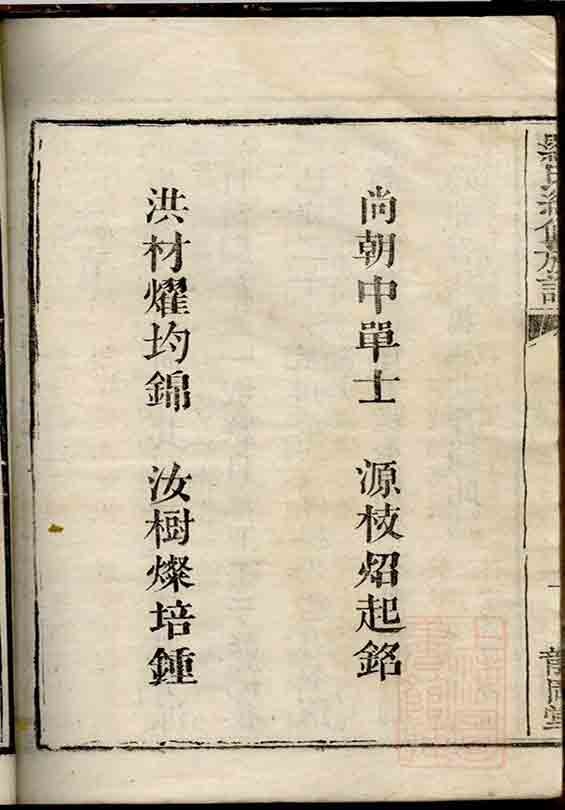 尚朝中單士 源枝炤起銘
洪材燿均錦 汝樹燦培鍾